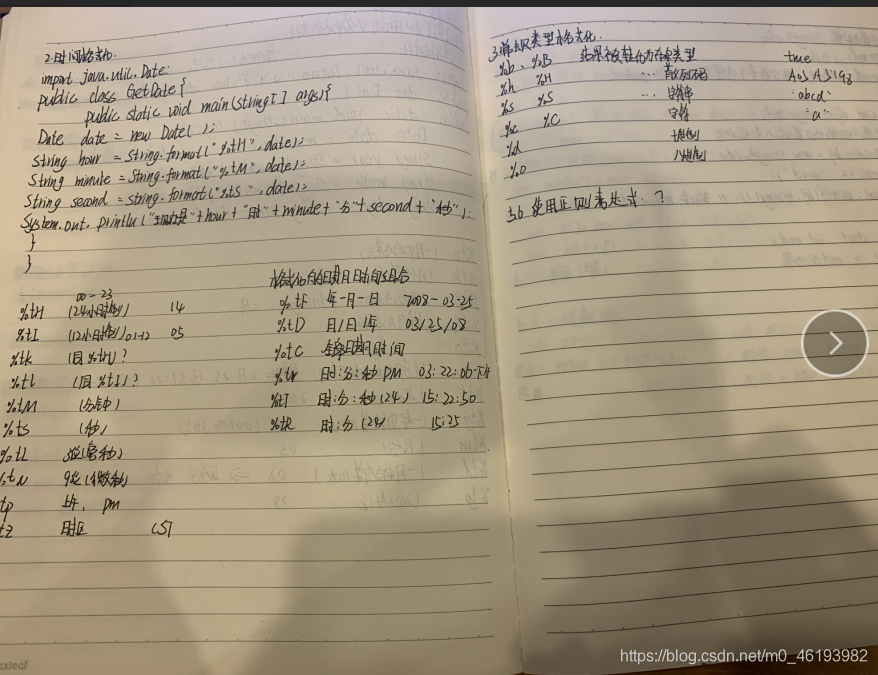 2.时间格式化.
import java.util.Date;
public class GetDate{
public static void main(String[] args){
Date date = new Date( );
String hour = String.format("%tH", date);
String minute = String.format("%tM", date);
String second = string.format("%tS", date);
System.out.println("现在是"+hour+"时"+minute+"分"+second+"秒");
}
}
00-23
%tH (24小时制) 14
%tI (12小时制) 01-12 05
%tk (同%tH)?
%tl (同%tI)?
%tM (分钟)
%tS (秒)
%tL 3位(毫秒)
%tN 9位(微秒)
tp 上午, pm
tZ 时区 CST
格式化的日期时间组合
%tF 年-月-日 2008-03-25
%tD 月/日/年 03/25/08
%tC 全部日期时间
%tr 时:分:秒 PM 03:22:06 下午
%tT 时:分:秒(24) 15:22:50
%tR 时:分(24) 15:25
3.常规类型格式化.
%b、%B 结果被转化为布尔类型 true
%h %H … 散列码 A05A5198
%s %S … 字符串 "abcd"
%c %C 字符 "a"
%d 十进制
%o 八进制
3.6 使用正则表达式.?
https://blog.csdn.net/m0_46193982